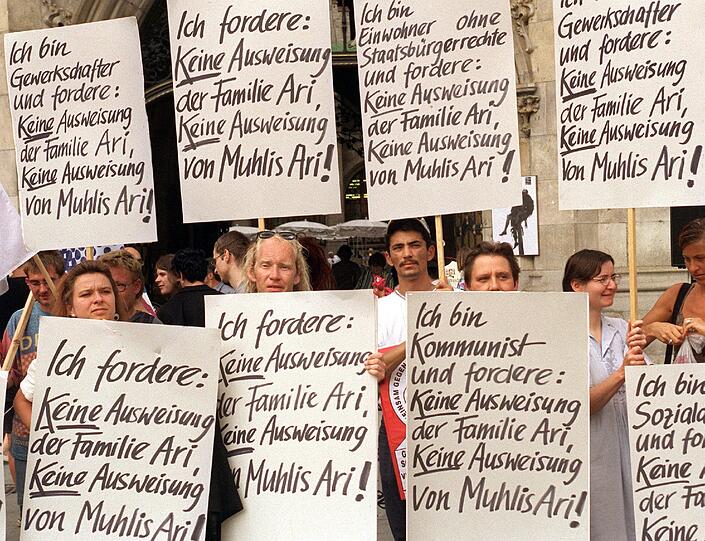 Ich bin
Gewerkschafter
und fordere:
Keine Ausweisung
der Familie Ari,
Keine Ausweisung
von Muhlis Ari!
Ich fordere:
Keine Ausweisung
der Familie Ari,
Keine Ausweisung
von Muhlis Ari!
Ich bin
Einwohner ohne
Staatsbürgerrechte
und fordere:
Keine Ausweisung
der Familie Ari,
Keine Ausweisung
von Muhlis Ari!
Gewerkschafter
und fordere:
Keine Ausweisung
der Familie Ari,
Keine Ausweisung
von Muhlis Ari!
Ich fordere:
Keine Ausweisung
der Familie Ari,
Keine Ausweisung
von Muhlis Ari!
Ich fordere:
Keine Ausweisung
der Familie Ari,
Keine Ausweisung
Muhlis Ari!
Ich bin
Kommunist
und fordere:
Keine Ausweisung
der Familie Ari,
Keine Ausweisung
von Muhlis Ari!
Ich bin
Soziald
und fo
Keine A
der Fa
Keine